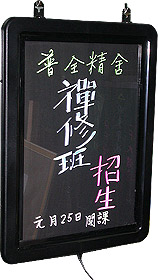 普全精舍
禪修班
招生
元月25日開課